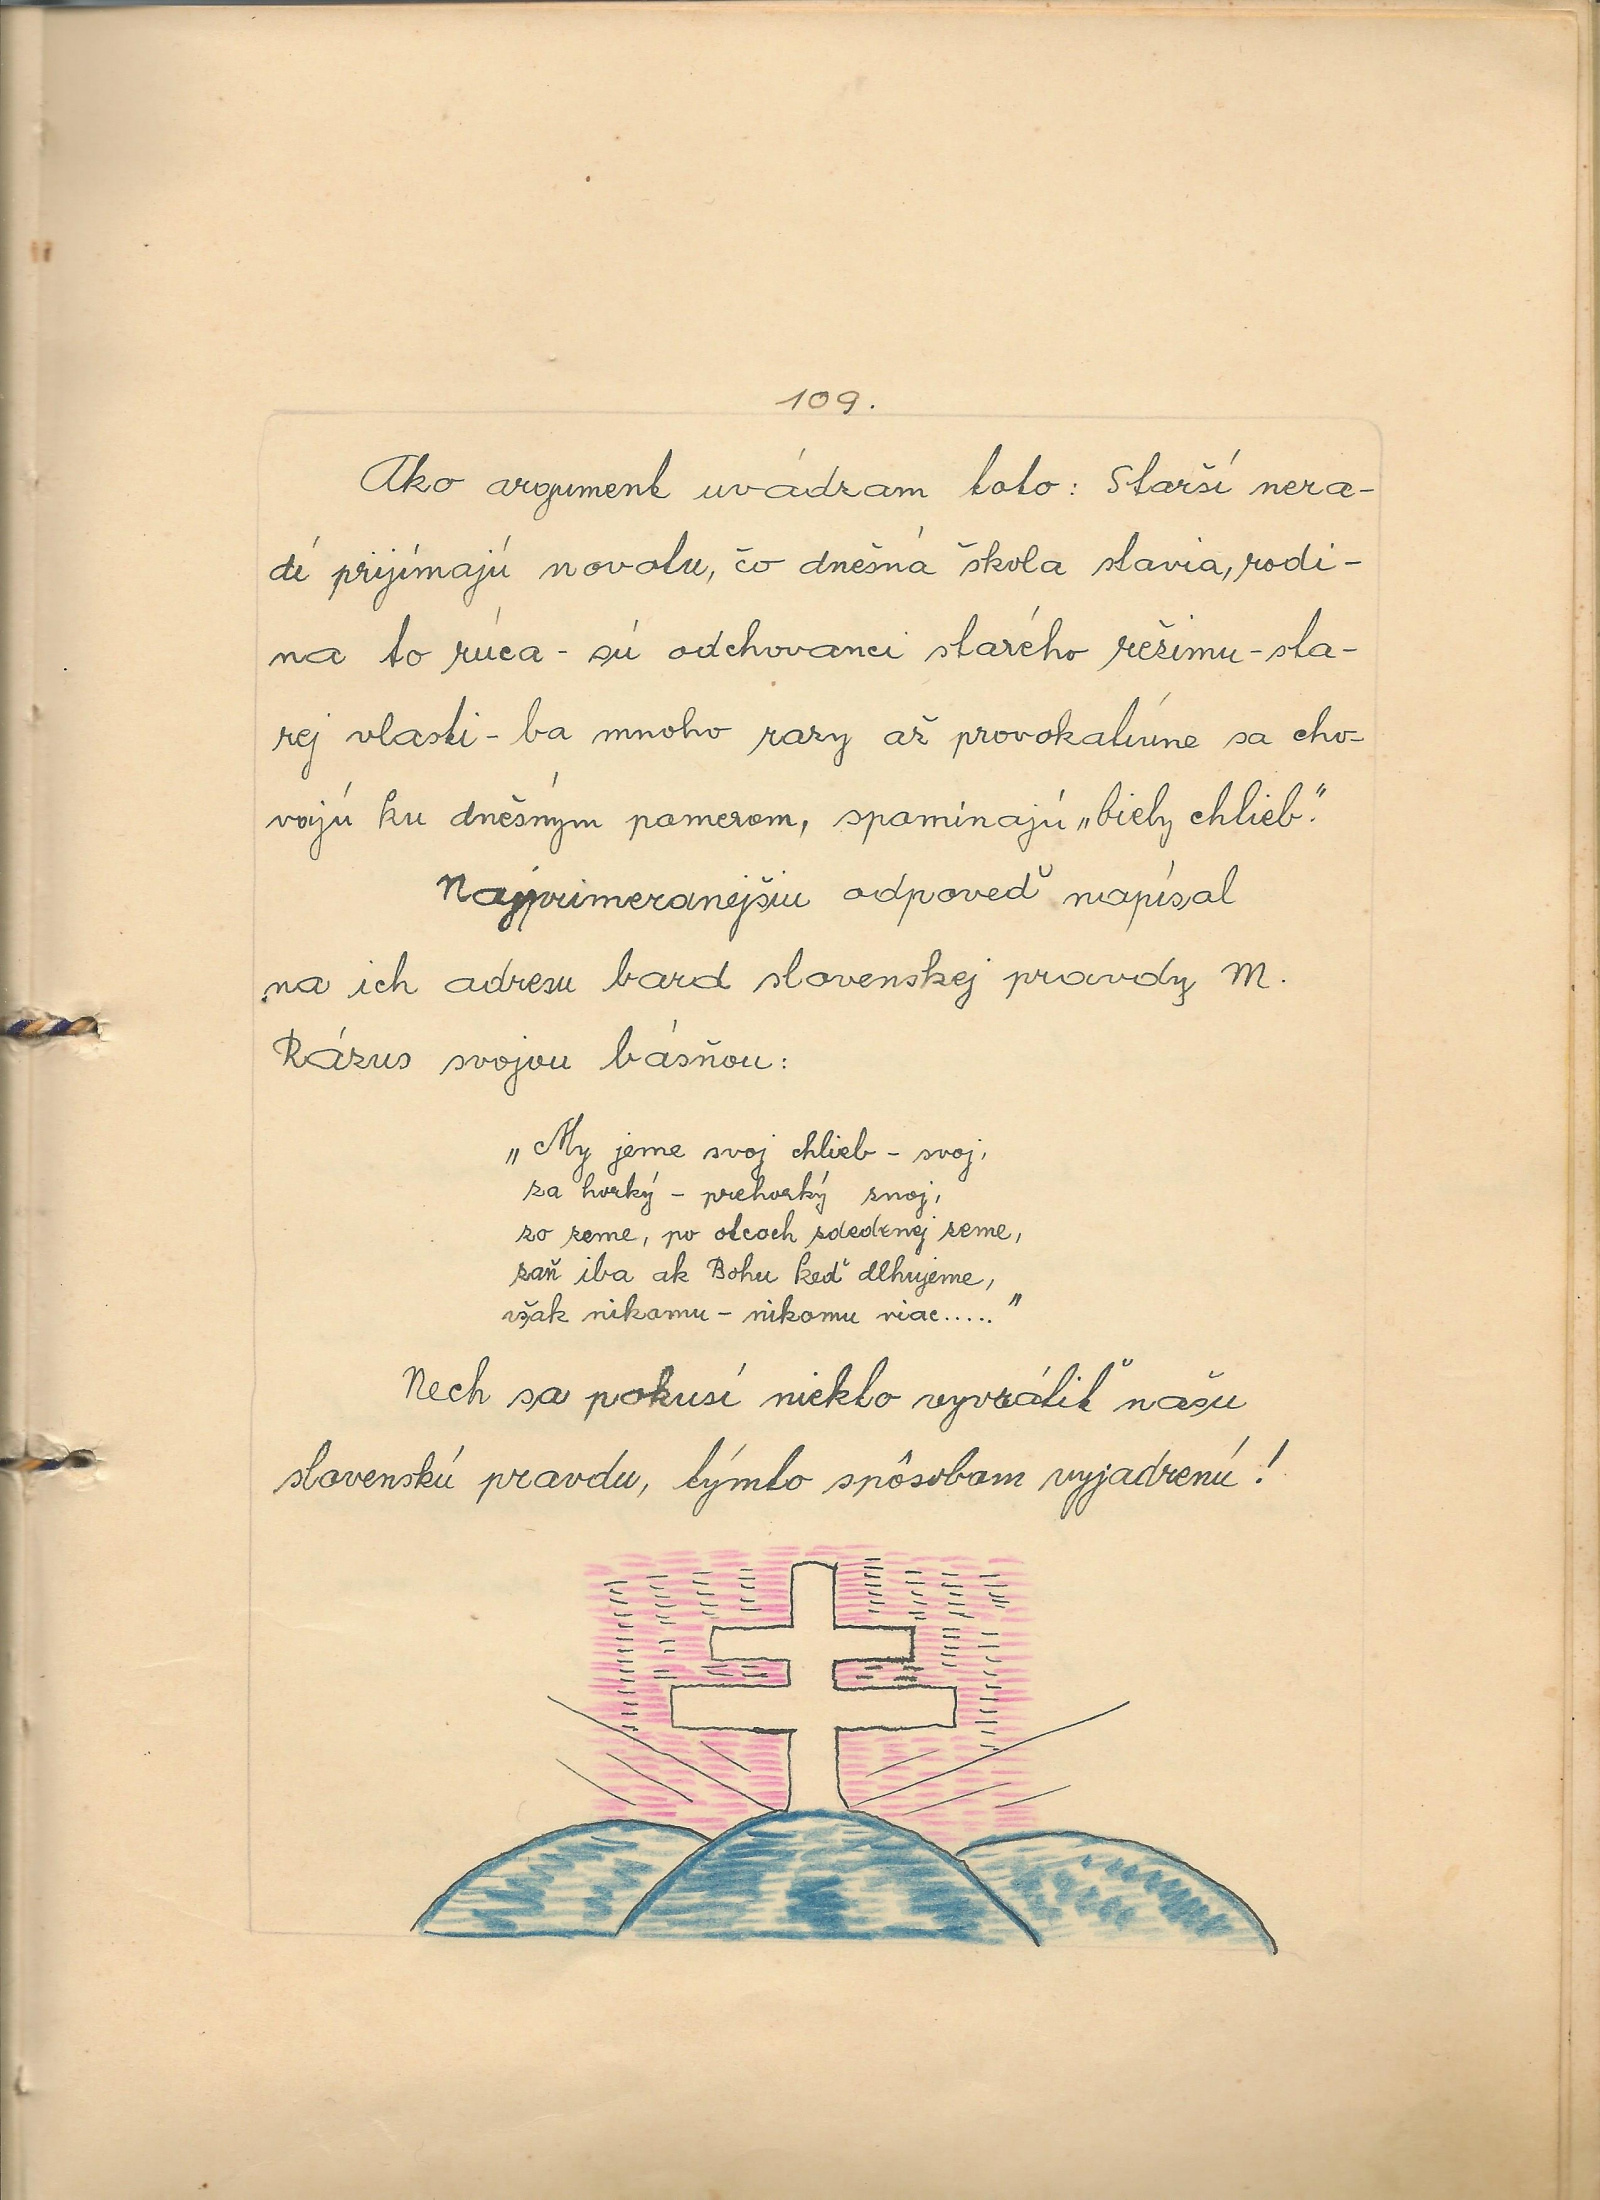 109.
Ako argument uvádzam toto: Starší nera-
di prijímajú novotu, čo dnešná škola stavia, rodi-
na to rúca - sú odchovanci starého režimu - sta-
rej vlasti - ba mnoho razy až provokatívne sa cho-
vajú ku dněsným pomerom, spomínajú „biely chlieb".
Najprimeranejšiu odpoveď napísal
na ich adresu bard slovenskej pravdy M.
Rázus svojou básňou:
„My jeme svoj chlieb - svoj,
za horký - prehorký znoj,
zo zeme, po otcoch zdedenej zeme,
zaň iba ak Bohu keď dlhujeme,
však nikomu - nikomu viac....."
Nech sa pokusí niekto vyvrátiť našu
slovenskú pravdu, týmto spôsobom vyjadrenú!